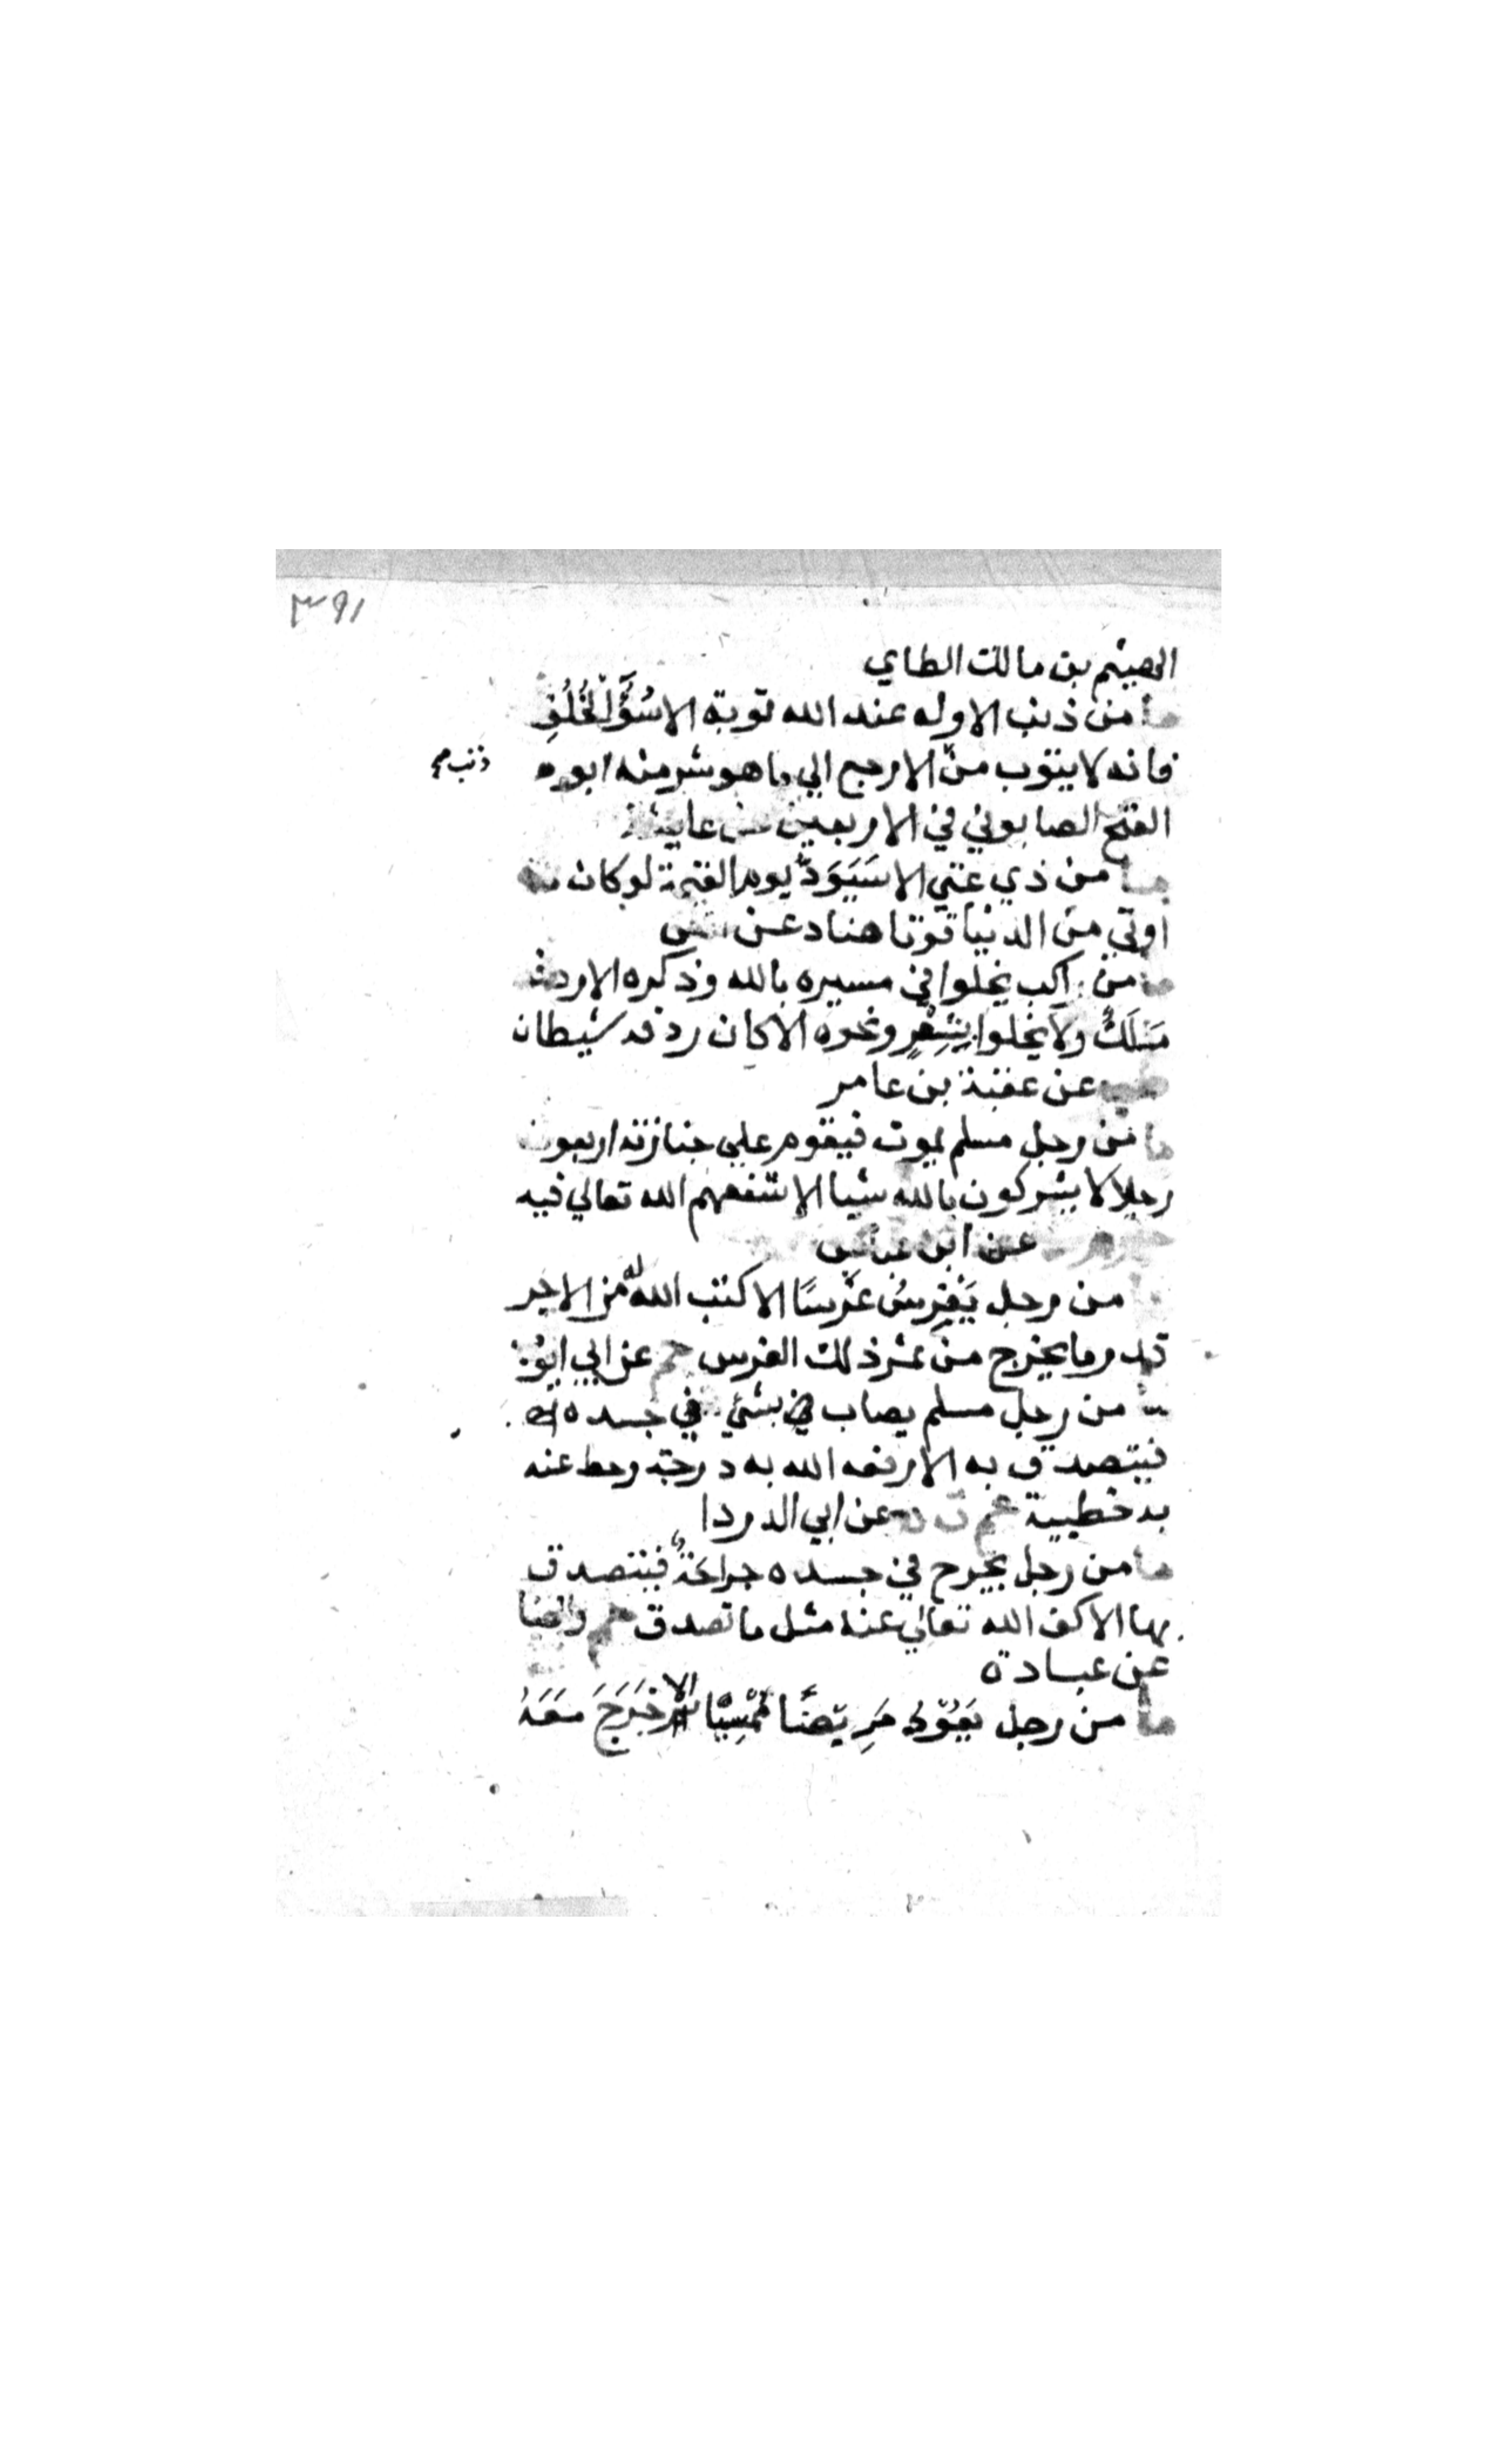 ٣٩١
الهيثم بن مالك الطاي
ما من ذنب الا وله عند الله توبة الا سُوَّءَ الْخُلُقِ
فانه لا يتوب من الا رجع الي ما هو شر منه ابو
ذنب صح
الفتح الصابوني في الاربعين عن عايشة
ما من ذي غني الا سَيَوَدّ يوم القيمة لو كان
اوتي من الدنيا قوتا هناد عن انس
ما من راكب يخلوا في مسيره بالله وذكره الا ردفه
مَلَكٌ ولا يخلوا بِشِعْرٍ ونحوه الا كان ردفه شيطان
طب عن عقبة بن عامر
ما من رجل مسلم يموت فيقوم علي جنازته اربعون
رجلا لا يشركون بالله شيا الا شفعهم الله تعالي فيه
عن ابن عباس
من رجل يَغْرِسُ غَرْسًا الا كتب الله له من الاجر
قدر ما يخرج من ثمر ذلك الغرس حم عن ابي ايوب
ما من رجل مسلم يصاب بشئ في جسده
فيتصدق به الا رفعه الله به درجة وحط عنه
به خطيية حم ت ه عن ابي الدردا
ما من رجل يجرح في جسده جراحةً فيتصدق
بها الا كفر الله تعالي عنه مثل ما تصدق حم والضيا
عن عبادة
ما من رجل يَعُوْدُ مَرِيْضًا مُمْسِيًا الا خَرَجَ مَعَهُ